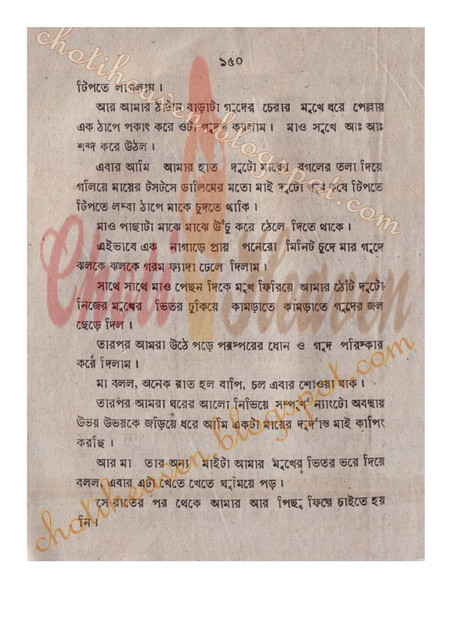 ১৫০
টিপতে লাগলাম।
আর আমার ঠাটান বাড়াটা গুদের চেরার মুখে ধরে পেল্লার
এক ঠাপে পকাৎ করে ওটা গুদস্থ করলাম। মাও সুখে আঃ আঃ
শব্দ করে উঠল।
এবার আমি আমার হাত দুটো মায়ের বগলের তলা দিয়ে
গলিয়ে মায়ের টসটসে ডালিমের মতো মাই দুটো কষে টিপতে
টিপতে লম্বা ঠাপে মাকে চুদতে থাকি।
মাও পাছাটা মাঝে মাঝে উঁচু করে ঠেলে দিতে থাকে।
এইভাবে এক নাগাড়ে প্রায় পনেরো মিনিট চুদে মার গুদে
ঝলকে ঝলকে গরম ফ্যাদা ঢেলে দিলাম।
সাথে সাথে মাও পেছন দিকে মুখ ফিরিয়ে আমার ঠোঁট দুটো
নিজের মুখের ভিতর ঢুকিয়ে কামড়াতে কামড়াতে গুদের জল
ছেড়ে দিল।
তারপর আমরা উঠে পড়ে পরস্পরের ধোন ও গুদ পরিষ্কার
করে দিলাম।
মা বলল, অনেক রাত হল বাপি, চল এবার শোওয়া যাক।
তারপর আমরা ঘরের আলো নিভিয়ে সম্পূর্ণ ন্যাংটো অবস্থায়
উভয় উভয়কে জড়িয়ে ধরে আমি একটা মায়ের দুর্দান্ত মাই কাপিং
করছি।
আর মা তার অন্য মাইটা আমার মুখের ভিতর ভরে দিয়ে
বলল, এবার এটা খেতে খেতে ঘুমিয়ে পড়।
সে রাতের পর থেকে আমার আর পিছু ফিরে চাইতে হয়
নি।
chotiheaven.blogspot.com
Choti Heaven
chotiheaven.blogspot.com